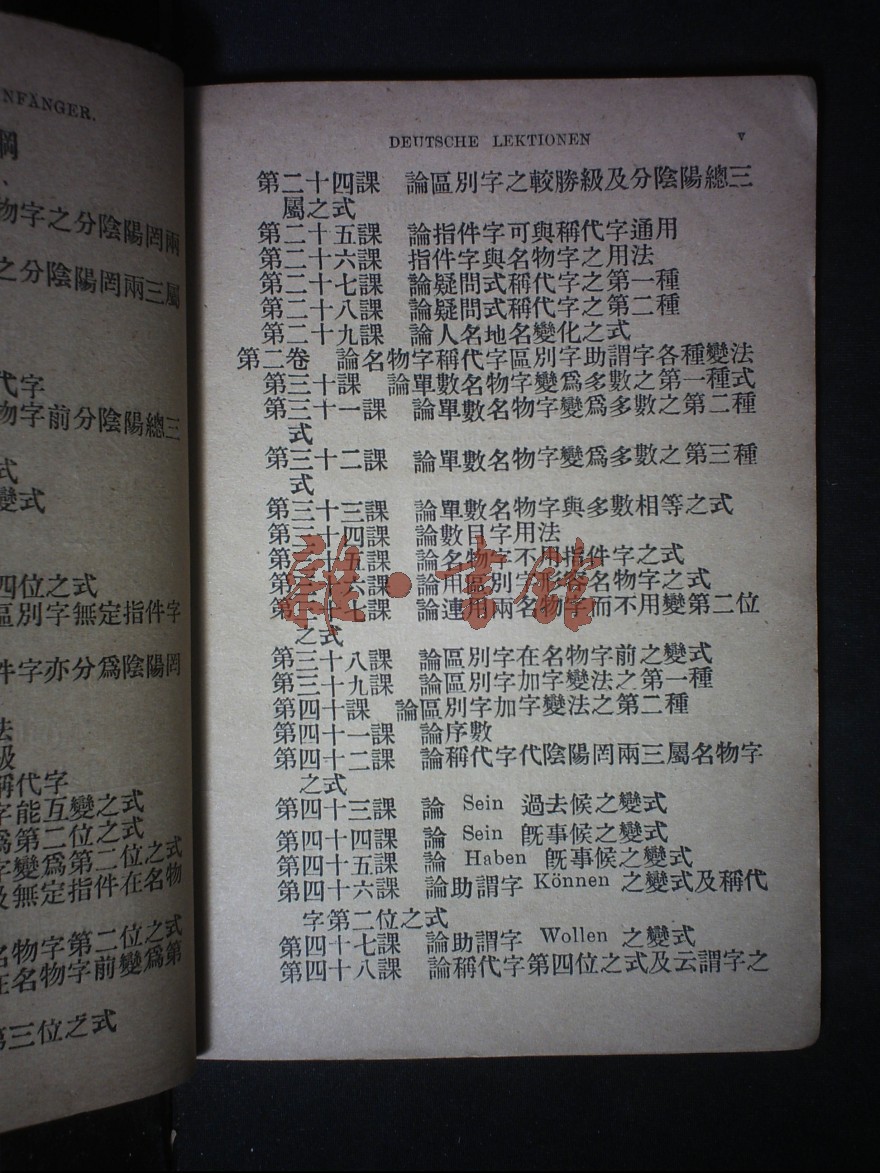 NFÄNGER.
綱
物字之分陰陽罔兩
之分陰陽罔兩三屬
代字
物字前分陰陽總三
式
變式
四位之式
區別字無定指件字
件字亦分爲陰陽罔
法
級
稱代字
字能互變之式
爲第二位之式
字變爲第二位之式
及無定指件在名物
名物字第二位之式
在名物字前變爲第
第三位之式
DEUTSCHE LEKTIONEN v
第二十四課 論區別字之較勝級及分陰陽總三
屬之式
第二十五課 論指件字可與稱代字通用
第二十六課 指件字與名物字之用法
第二十七課 論疑問式稱代字之第一種
第二十八課 論疑問式稱代字之第二種
第二十九課 論人名地名變化之式
第二卷 論名物字稱代字區別字助謂字各種變法
第三十課 論單數名物字變爲多數之第一種式
第三十一課 論單數名物字變爲多數之第二種
式
第三十二課 論單數名物字變爲多數之第三種
式
第三十三課 論單數名物字與多數相等之式
第三十四課 論數目字用法
第三十五課 論名物字不用指件字之式
第三十六課 論用區別字形容名物字之式
第三十七課 論連用兩名物字而不用變第二位
之式
第三十八課 論區別字在名物字前之變式
第三十九課 論區別字加字變法之第一種
第四十課 論區別字加字變法之第二種
第四十一課 論序數
第四十二課 論稱代字代陰陽罔兩三屬名物字
之式
第四十三課 論 Sein 過去候之變式
第四十四課 論 Sein 旣事候之變式
第四十五課 論 Haben 旣事候之變式
第四十六課 論助謂字 Können 之變式及稱代
字第二位之式
第四十七課 論助謂字 Wollen 之變式
第四十八課 論稱代字第四位之式及云謂字之
雜·書館